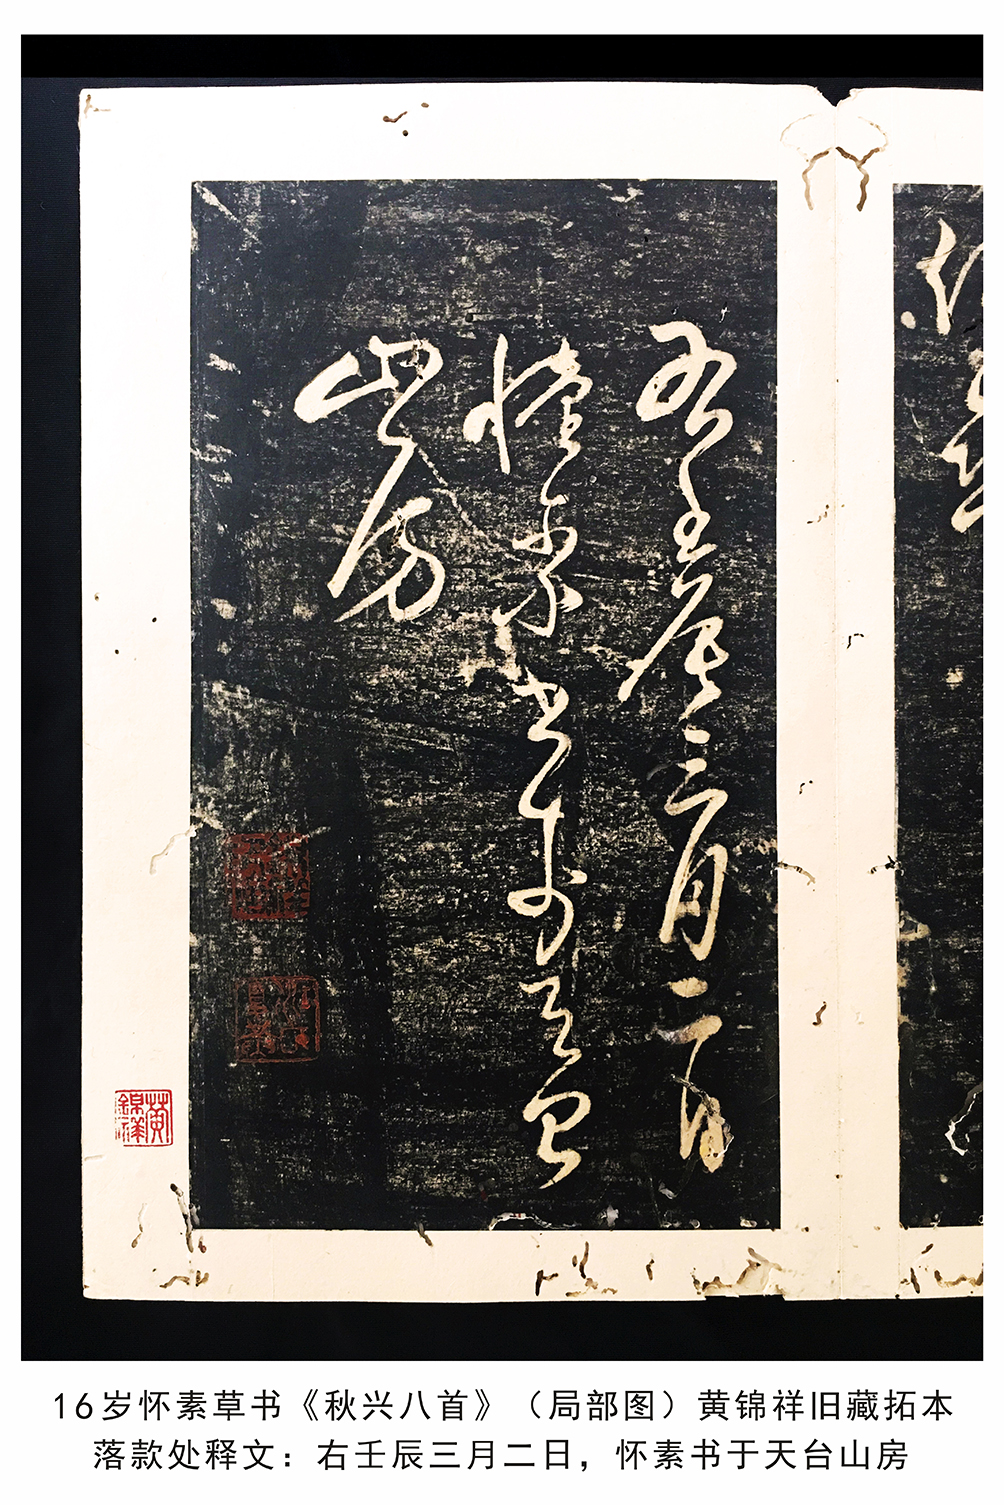 右壬辰三月二日
懷素书于天台
山房
黄錦祥
16岁怀素草书《秋兴八首》（局部图）黄锦祥旧藏拓本
落款处释文：右壬辰三月二日，怀素书于天台山房